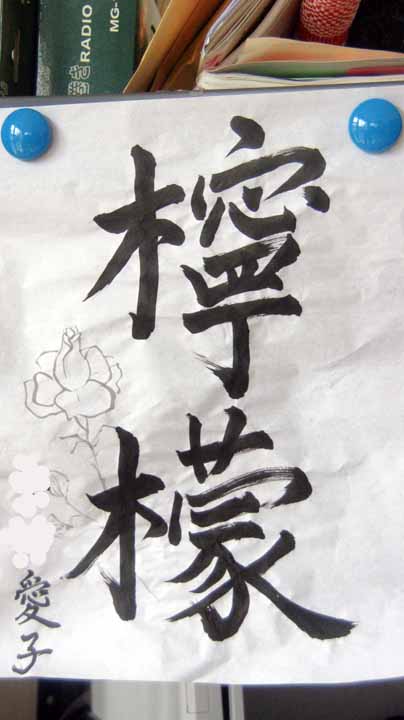 RADIO
MG-
檸檬
愛子